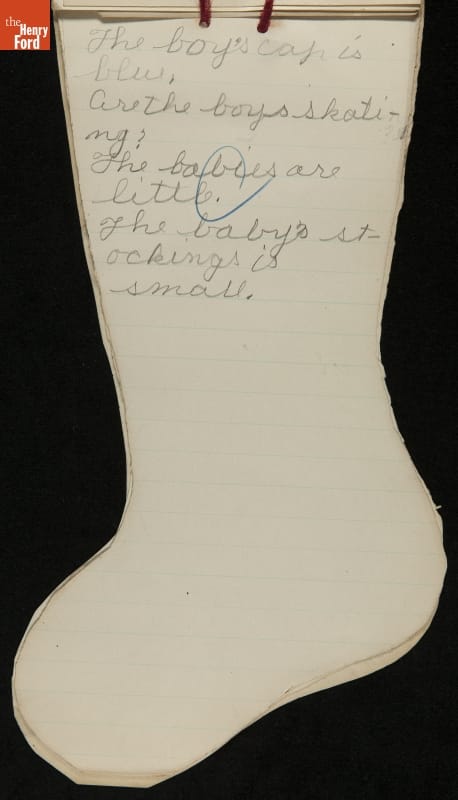 the
Henry
Ford
The boy's cap is
blue.
Are the boys skati-
ng?
The babies are
little.
The baby's st-
ockings is
small.